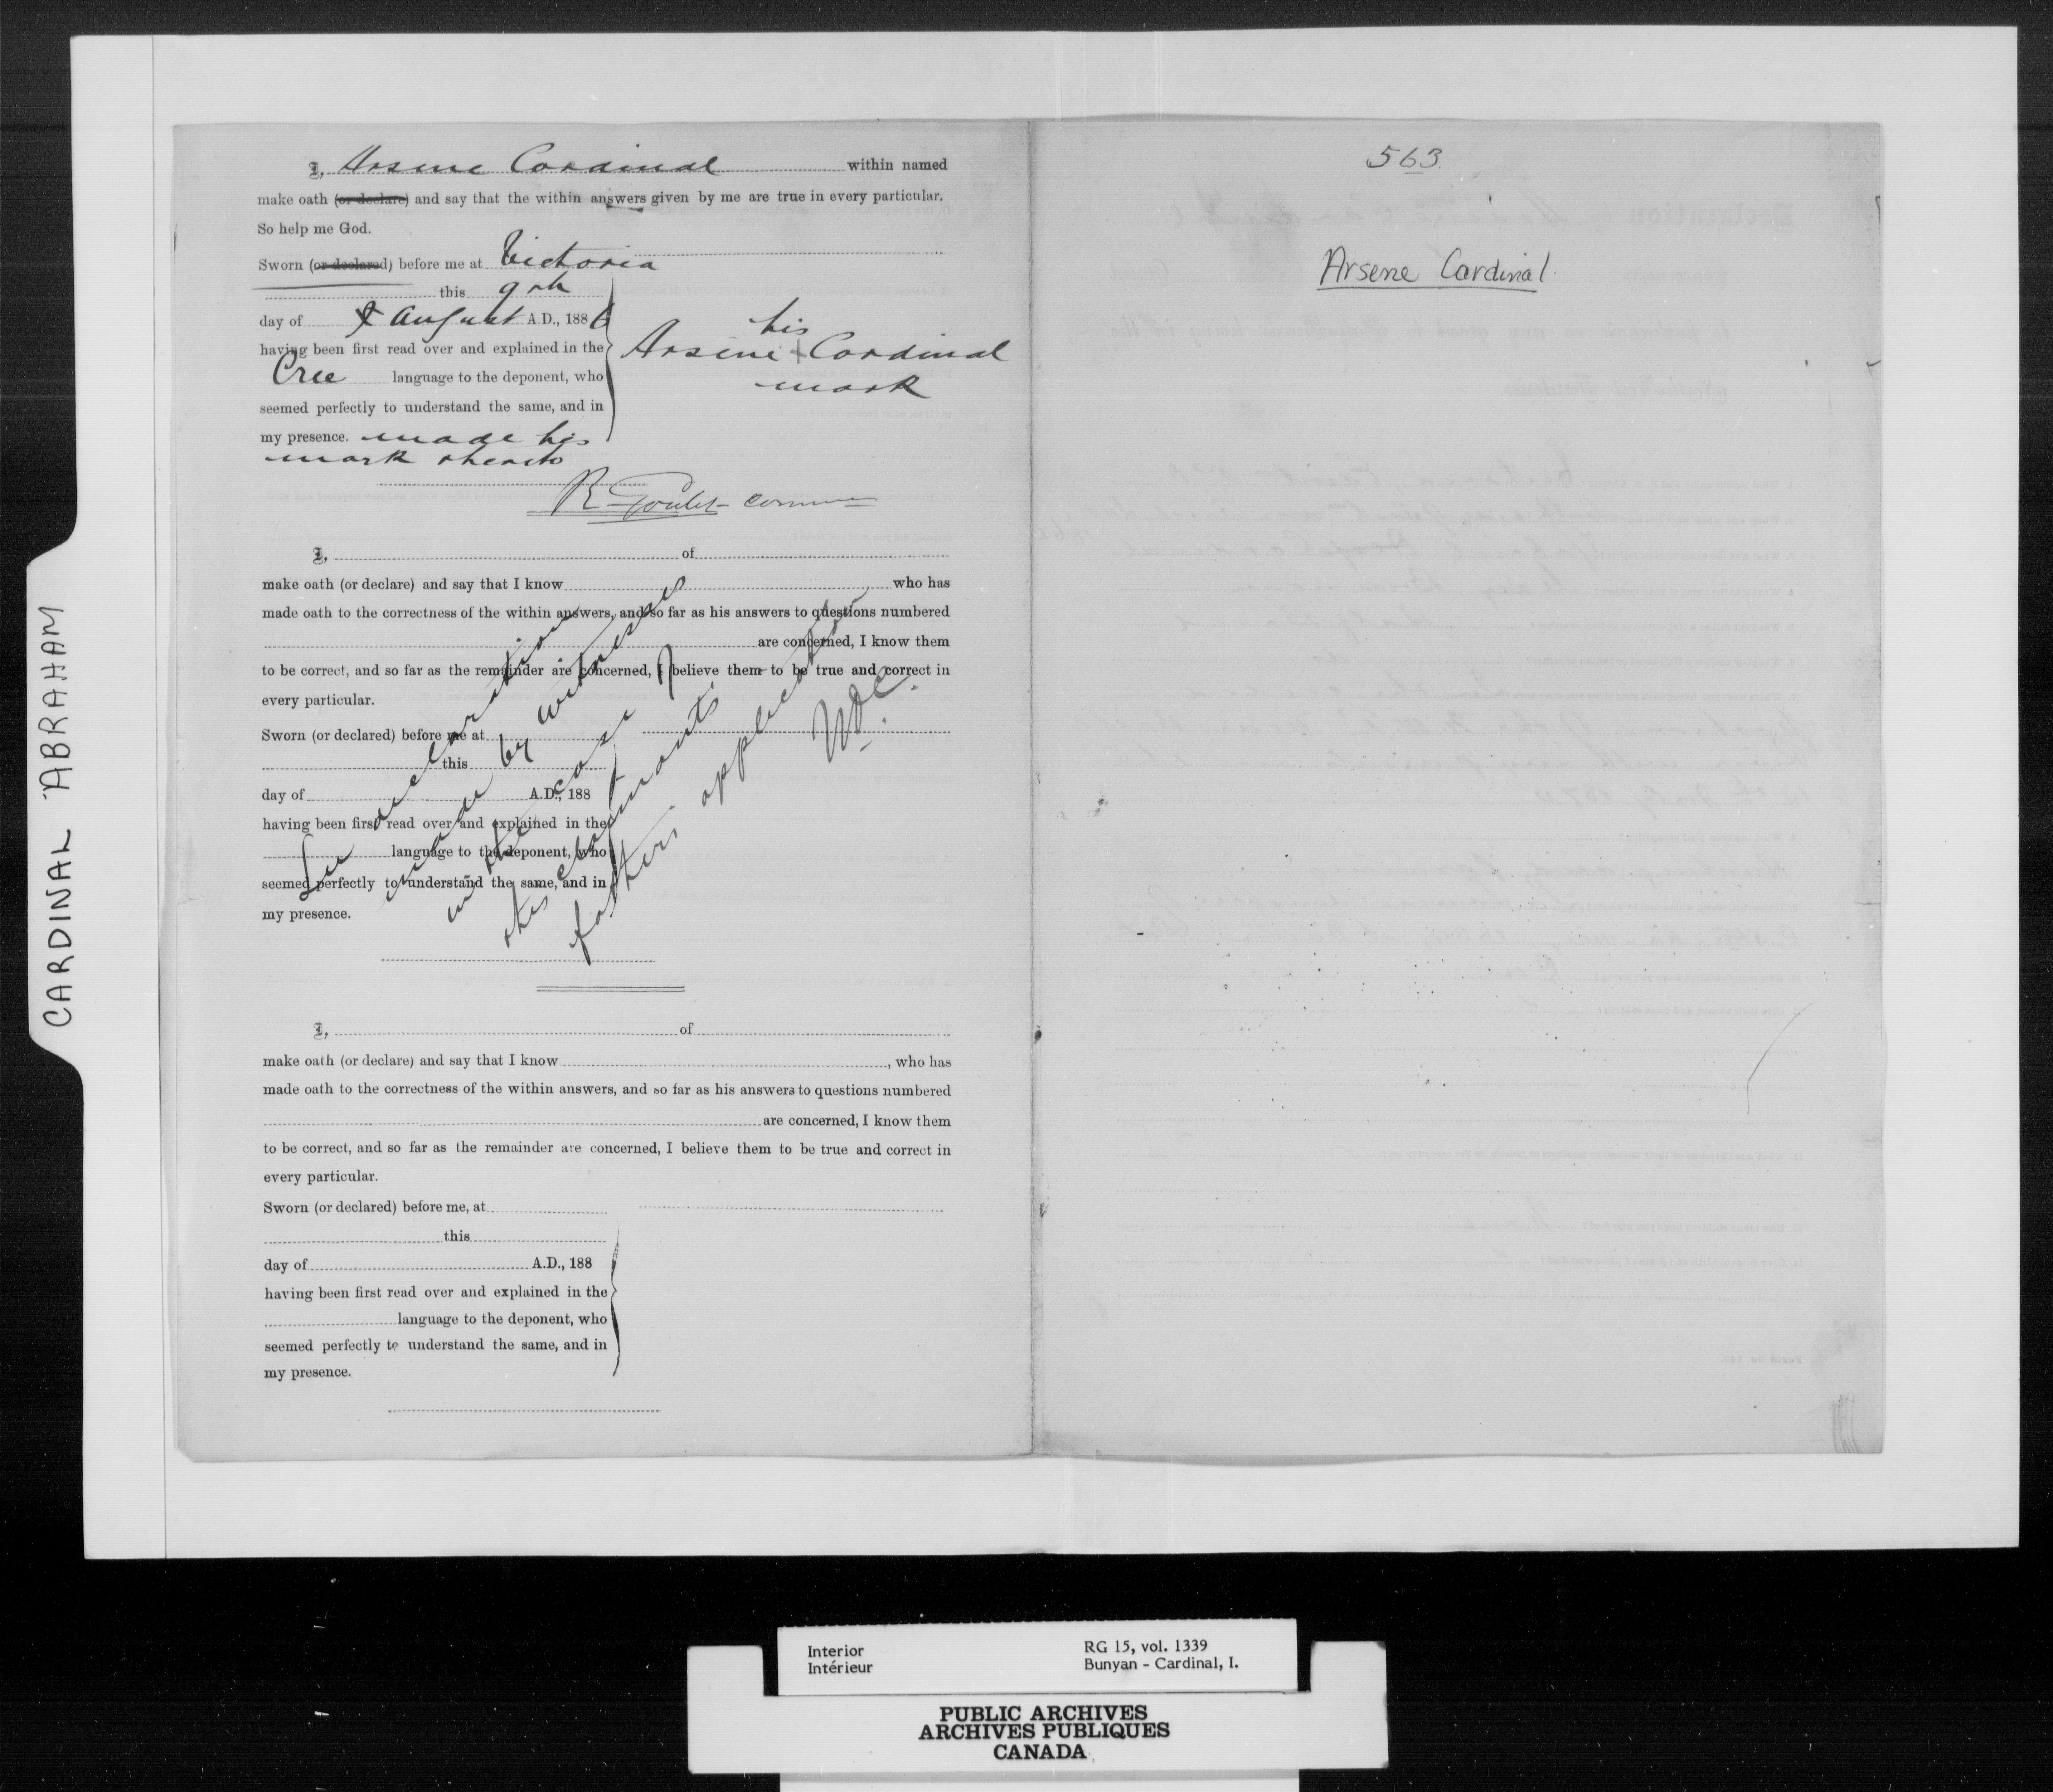 CARDINAL ABRAHAM
I, Arsene Cardinal within named
make oath (or declare) and say that the within answers given by me are true in every particular.
So help me God.
Sworn (or declared) before me at Victoria
this 9th
day of August A.D., 1886
having been first read over and explained in the
Cree language to the deponent, who
seemed perfectly to understand the same, and in
my presence. made his
mark thereto
his
Arsene + Cardinal
mark
R Goulet Comm
I, of
make oath (or declare) and say that I know who has
made oath to the correctness of the within answers, and so far as his answers to questions numbered
are concerned, I know them
to be correct, and so far as the remainder are concerned, I believe them to be true and correct in
every particular.
Sworn (or declared) before me at
this
day of A.D., 188
having been first read over and explained in the
language to the deponent, who
seemed perfectly to understand the same, and in
my presence.
See declarations
made by witnesses
in the case of
this claimants
father's application
I, of
make oath (or declare) and say that I know , who has
made oath to the correctness of the within answers, and so far as his answers to questions numbered
are concerned, I know them
to be correct, and so far as the remainder are concerned, I believe them to be true and correct in
every particular.
Sworn (or declared) before me, at
this
day of A.D., 188
having been first read over and explained in the
language to the deponent, who
seemed perfectly to understand the same, and in
my presence.
563.
Arsene Cardinal.
Interior
Intérieur
RG 15, vol. 1339
Bunyan - Cardinal, I.
PUBLIC ARCHIVES
ARCHIVES PUBLIQUES
CANADA